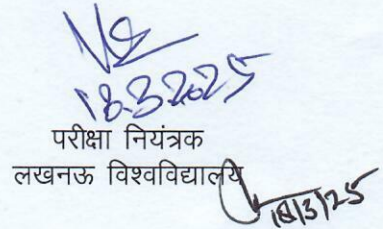 18.3.2025
परीक्षा नियंत्रक
लखनऊ विश्वविद्यालय
18/3/25